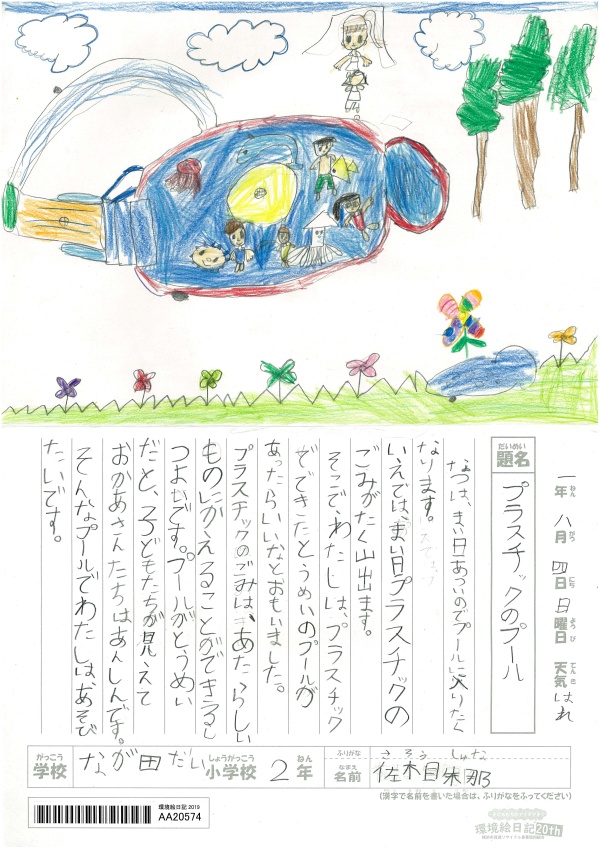 一年 八月 四日 日曜日 天気 はれ
ねん がつ にち ようび てんき
だいめい
題名 プラスチックのプール
なつは、まい日あついのでプールに入りたく
なります。
いえでは、まい日プラスチックの
ごみがたく山出ます。
そこで、わたしは、プラスチック
でできたとうめいのプールが
あったらいいなとおもいました。
プラスチックのごみは、あたらしい
ものにかえることができるし
つよいです。プールがとうめい
だと、子どもたちが見えて
おかあさんたちはあんしんです。
そんなプールでわたしは、あそび
たいです。
がっこう しょうがっこう ねん
学校 なが田だい 小学校 2年
ふりがな さそう しゅな
なまえ
名前 佐木目朱那
(漢字で名前を書いた場合は、ふりがなをふってください)
環境絵日記 2019
AA20574
環境絵日記20th